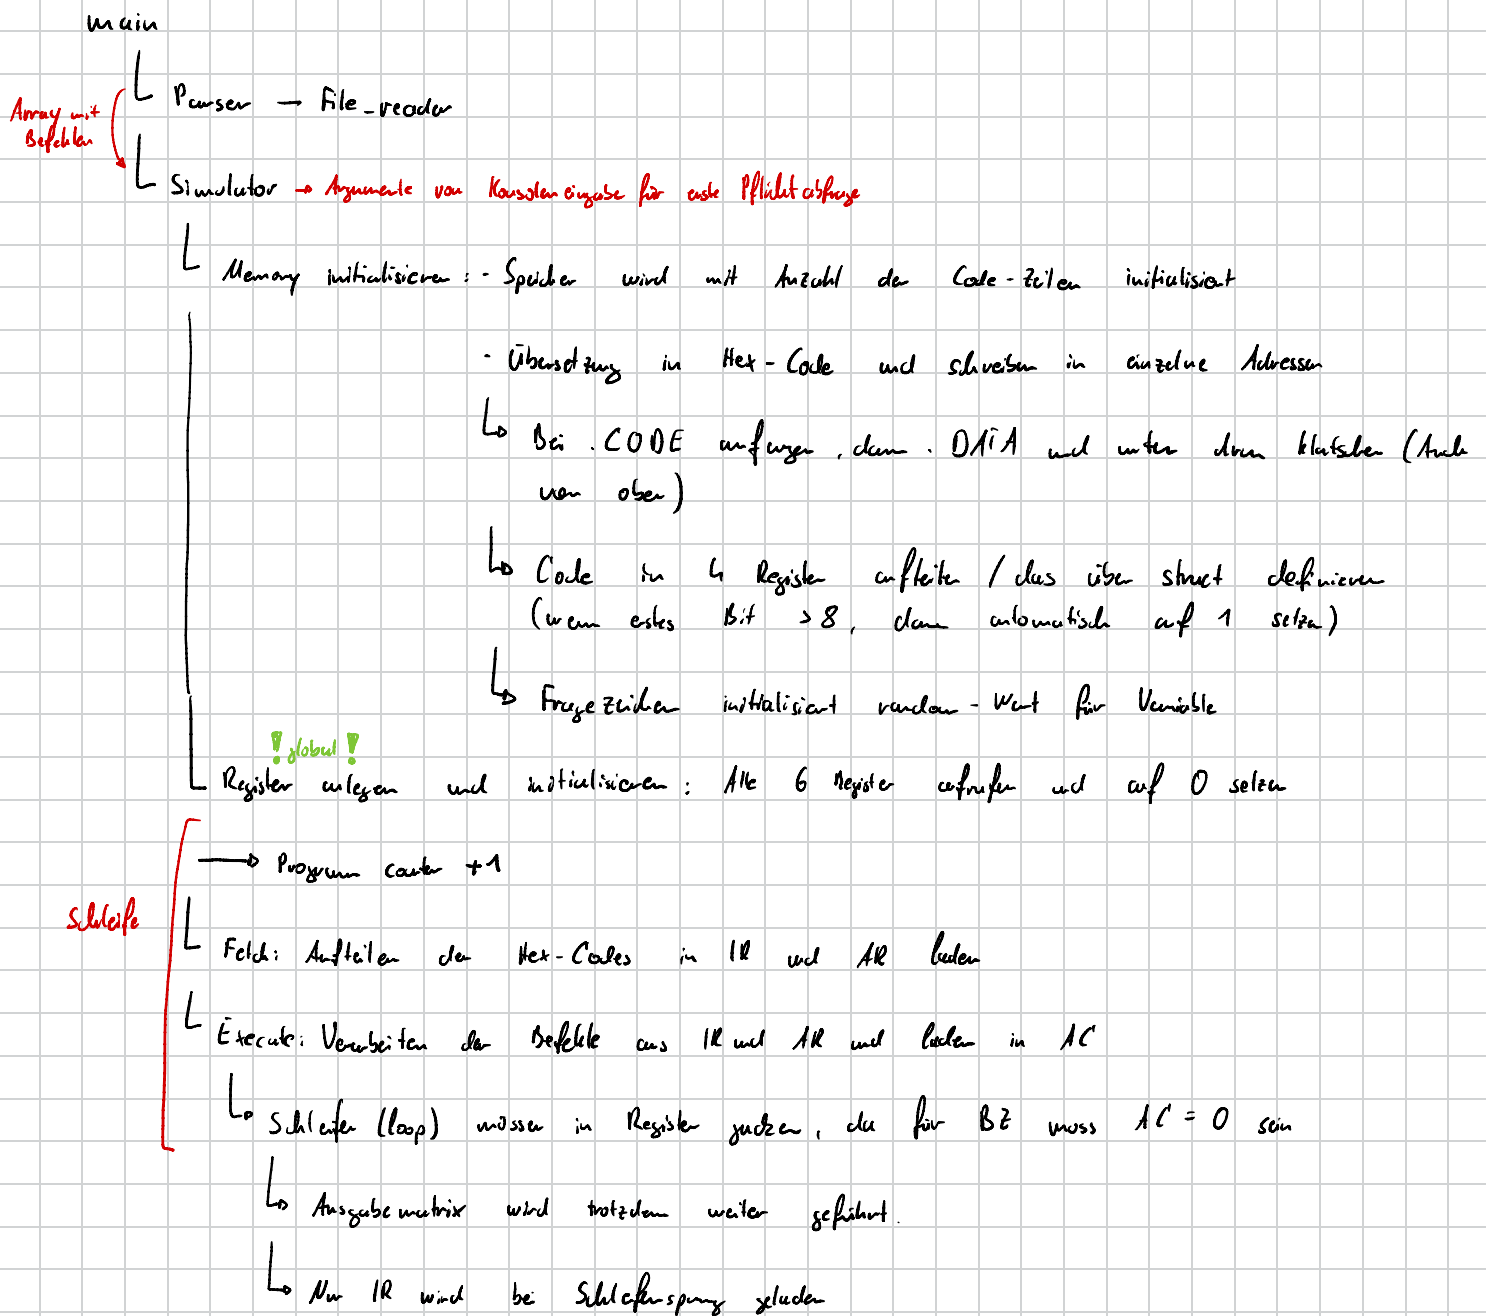 main
Parser → File_reader
Array mit
Befehlen
Simulator → Argumente von Konsoleneingabe für erste Pflichtabfrage
Memory initialisieren: - Speicher wird mit Anzahl der Code-Zeilen initialisiert
- Übersetzung in Hex-Code und schreiben in einzelne Adressen
↳ Bei .CODE anfangen, dann .DATA und unten dran klatschen (Auch
von oben)
↳ Code in 4 Register aufteilen / das über struct definieren
(wenn erstes Bit >8, dann automatisch auf 1 setzen)
↳ Fragezeichen initialisiert random-Wert für Variable
! global !
Register anlegen und initialisieren: Alle 6 Register aufrufen und auf 0 setzen
→ Program counter +1
Schleife
Fetch: Aufteilen der Hex-Codes in IR und AR laden
Execute: Verarbeiten der Befehle aus IR und AR und laden in AC
↳ Schleifen (loop) müssen in Register gucken, da für BZ muss AC = 0 sein
↳ Ausgabematrix wird trotzdem weiter geführt.
↳ Nur IR wird bei Schleifensprung geladen